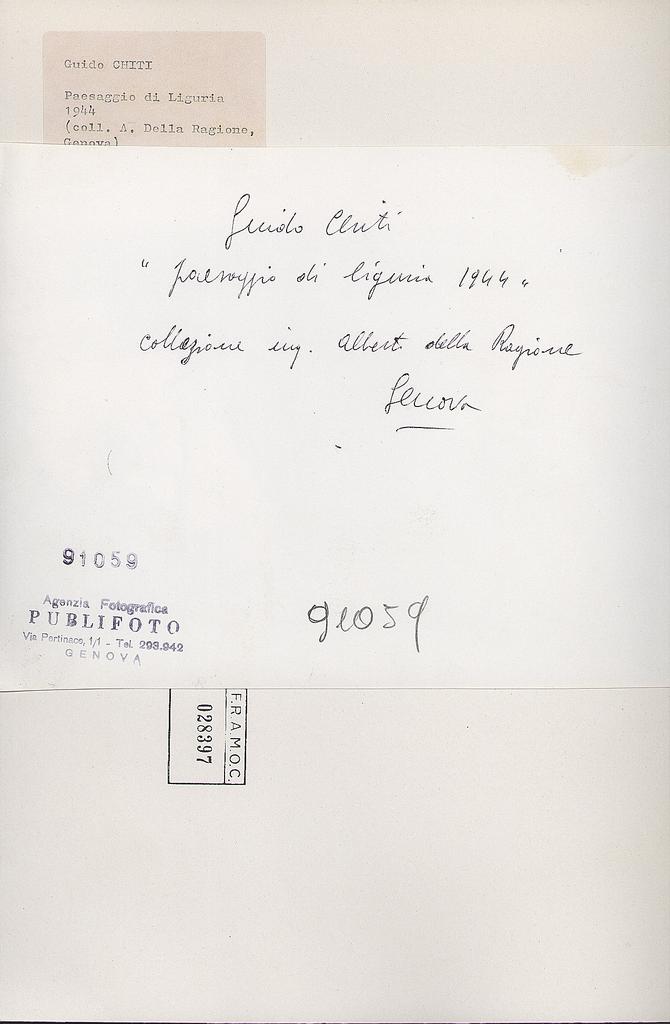 Guido CHITI
Paesaggio di Liguria
1944
(coll. A. Della Ragione,
Genova)
Guido Chiti
"paesaggio di liguria 1944"
collezione ing. Albert. della Ragione
Genova
91059
Agenzia Fotografica
PUBLIFOTO
Via Pertinace, 1/1 - Tel. 293.942
GENOVA
91059
F.R.A.M.O.C.
028397